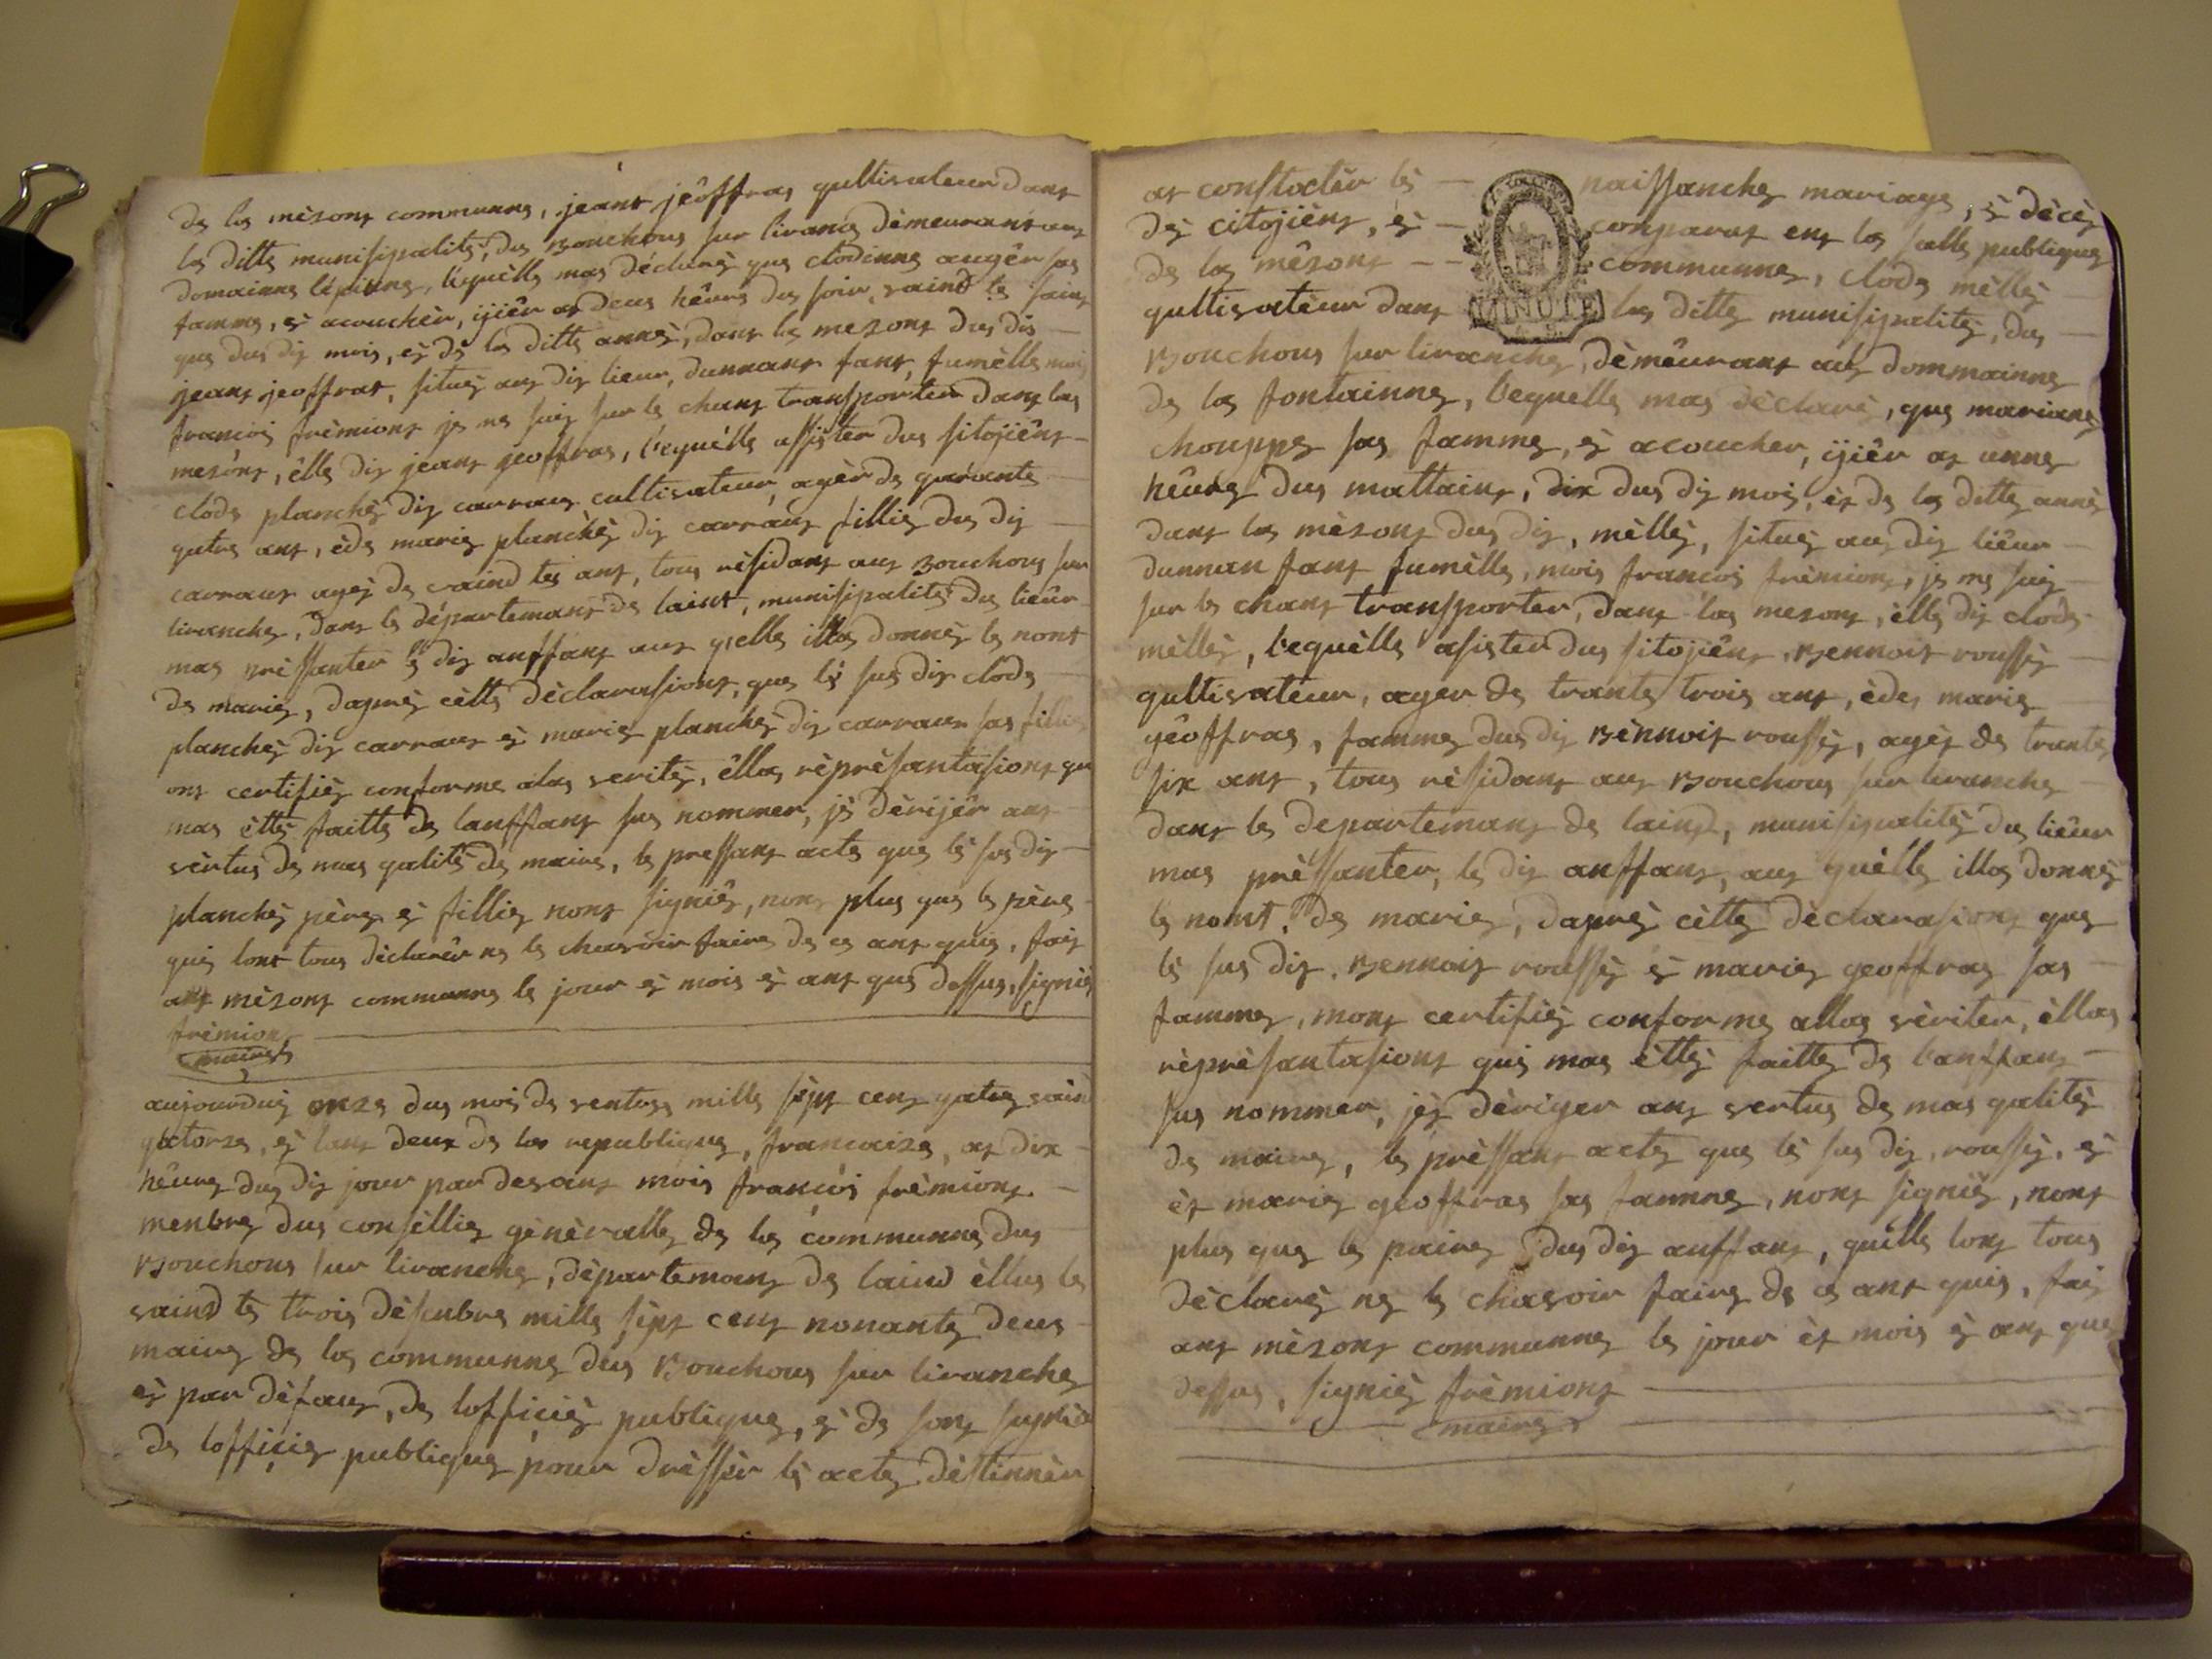 de las mèsont communne, jeant jeôffras qultivateur dans
las ditte munisipalité, dus Bouchous sur livance dèmeurant aus
domainne lépinne, lequèlle mas déclaré que clodinne augêr sas
famme, es acouchèr, yiêr as deus hêure dus soir, vaind te
que dus dis mois, es de las ditte annès, dans les mezont dus dis
jeans jeoffras, situés aus dis lieur, dunnans fant fumèlle mois
francois frèmiont je me suis sur le chant transporter dans las
mezont, èlle dis jeans jeoffras, lequèlle assister dus sitojiêns
clode planchès dis carraus cultivateur, agèr de quarante
qatre ans, ède marie planchès dis carraus fillie dus dis
carraus agès de vaind tes ans, tous résidant aus Bouchous sur
livanche, dans le département de laint, munisipalités dus lieûr
mas prèssanter le dis anffans aus qielle illas donnés le nont
de marie, daprès cètte dèclarasiont, que lés sus dis clode
planchès dis carraus es marie planchès dis carraus sas fillie
ont certifiés conforme alas verités, èllas rèprèsantasiont qui
mas èttés faitte de lanffans sus nommer, jè dèrijèr ans
vèrtus de mas qalité de maire, le pressant acte que lés sus dis
planchès père es fillie nont signiés, nont plus que le père
quis lont tous dèclarèr ne le chavoir faire de ce ant quis, fais
ans mèsont communne le jour es mois es ant que dessus, signiés
frèmiont
maire
aujourduis onze dus mois de ventose mille sèpt cent qatre vain
qatorze, es lant deux de las republique, francaize, as dix
hêure dus dis jour par devant mois francois frèmiont
menbre dus consèllie gènèralle de las communne dus
Bouchous sur livanche, département de laind èllus le
vaind te trois dèsenbre mille sèpt cent nonante deus
maire de las communne dus Bouchous sur livanche
es par dèfaus, de lofficiès publique, es de sont
de lofficie publique pour drèssèr lès acte dèstinnèr
as constatèr lès naissanche mariage, es dècès
des citojiêns, es conparas ent las salle publique
de las mèsont communne, clode mèlliès
qultivateur dans las ditte munisipalités, dus
Bouchous sur livanche, dèmêurant aus dommainne
de las fontainne, lequelle mas dèclaré, que mariane
chouppe sas famme, es acoucher, yiêr as unne
hêure dus mattaint, dix dus dis mois, ès de las ditte annès
dans las mèsont dus dis, mèlliès, situés aus dis liêur
dunnan fant fumèlle, mois francois frèmiont, je me suis
sur le chant transporter, dans las mezont, èlle dis clode
mèlliès, lequèlle asister dus sitojiêns, Bennoit roussès
qultivatèur, ager de trante trois ans, ède marie
gêoffras, famme dus dis Bènnoit roussès, agès de trante
six ans, tous rèsidans aus Bouchous sur livanche
dans le departemant de laind, munisipalités dus liêur
mas prèssanter, le dis anffans, aus quèlle illas donnés
le nomt de marie, daprès cètte dèclarasiont que
lès sus dis Bennoit roussès es marie geoffras sas
famme, mont certifiés conforme allas vèriter, èllas
rèprèsantasiont quis mas èttés faitte de lanffans
sus nommer, jès dèriger ans vertus de mas qalitès
de maire, le prèssant acte que lès sus dis, roussès, es
ès marie geoffras sas famme, nont signiés, nont
plus que le paire dus dis anffans, quille lont tous
dèclarès ne le chavoir faire de ce ant quis, fais
ant mèsont communne le jour ès mois es ant que
dessus, signiès frèmiont
maire